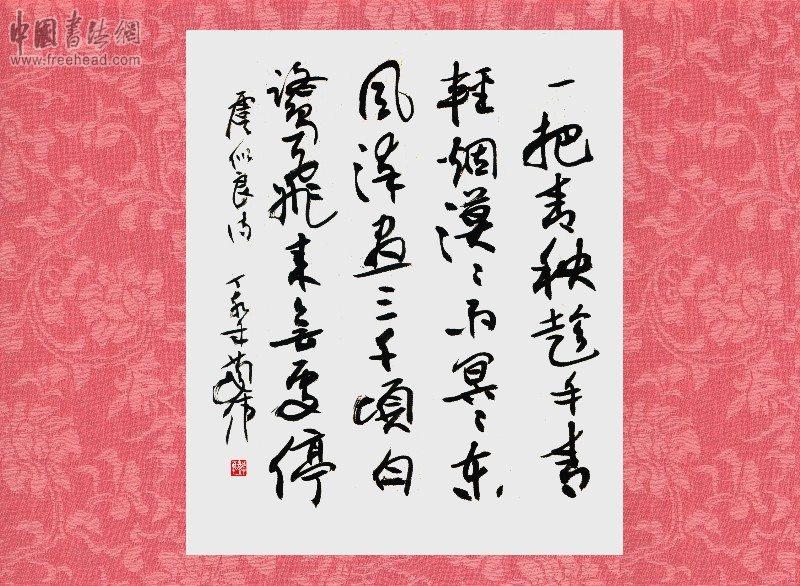 中國書法網
www.freehead.com
一把青秧趁手青
輕烟漠〻雨冥〻东
风染盡三千頃白
鹭飛来無处停
虞似良诗 丁亥